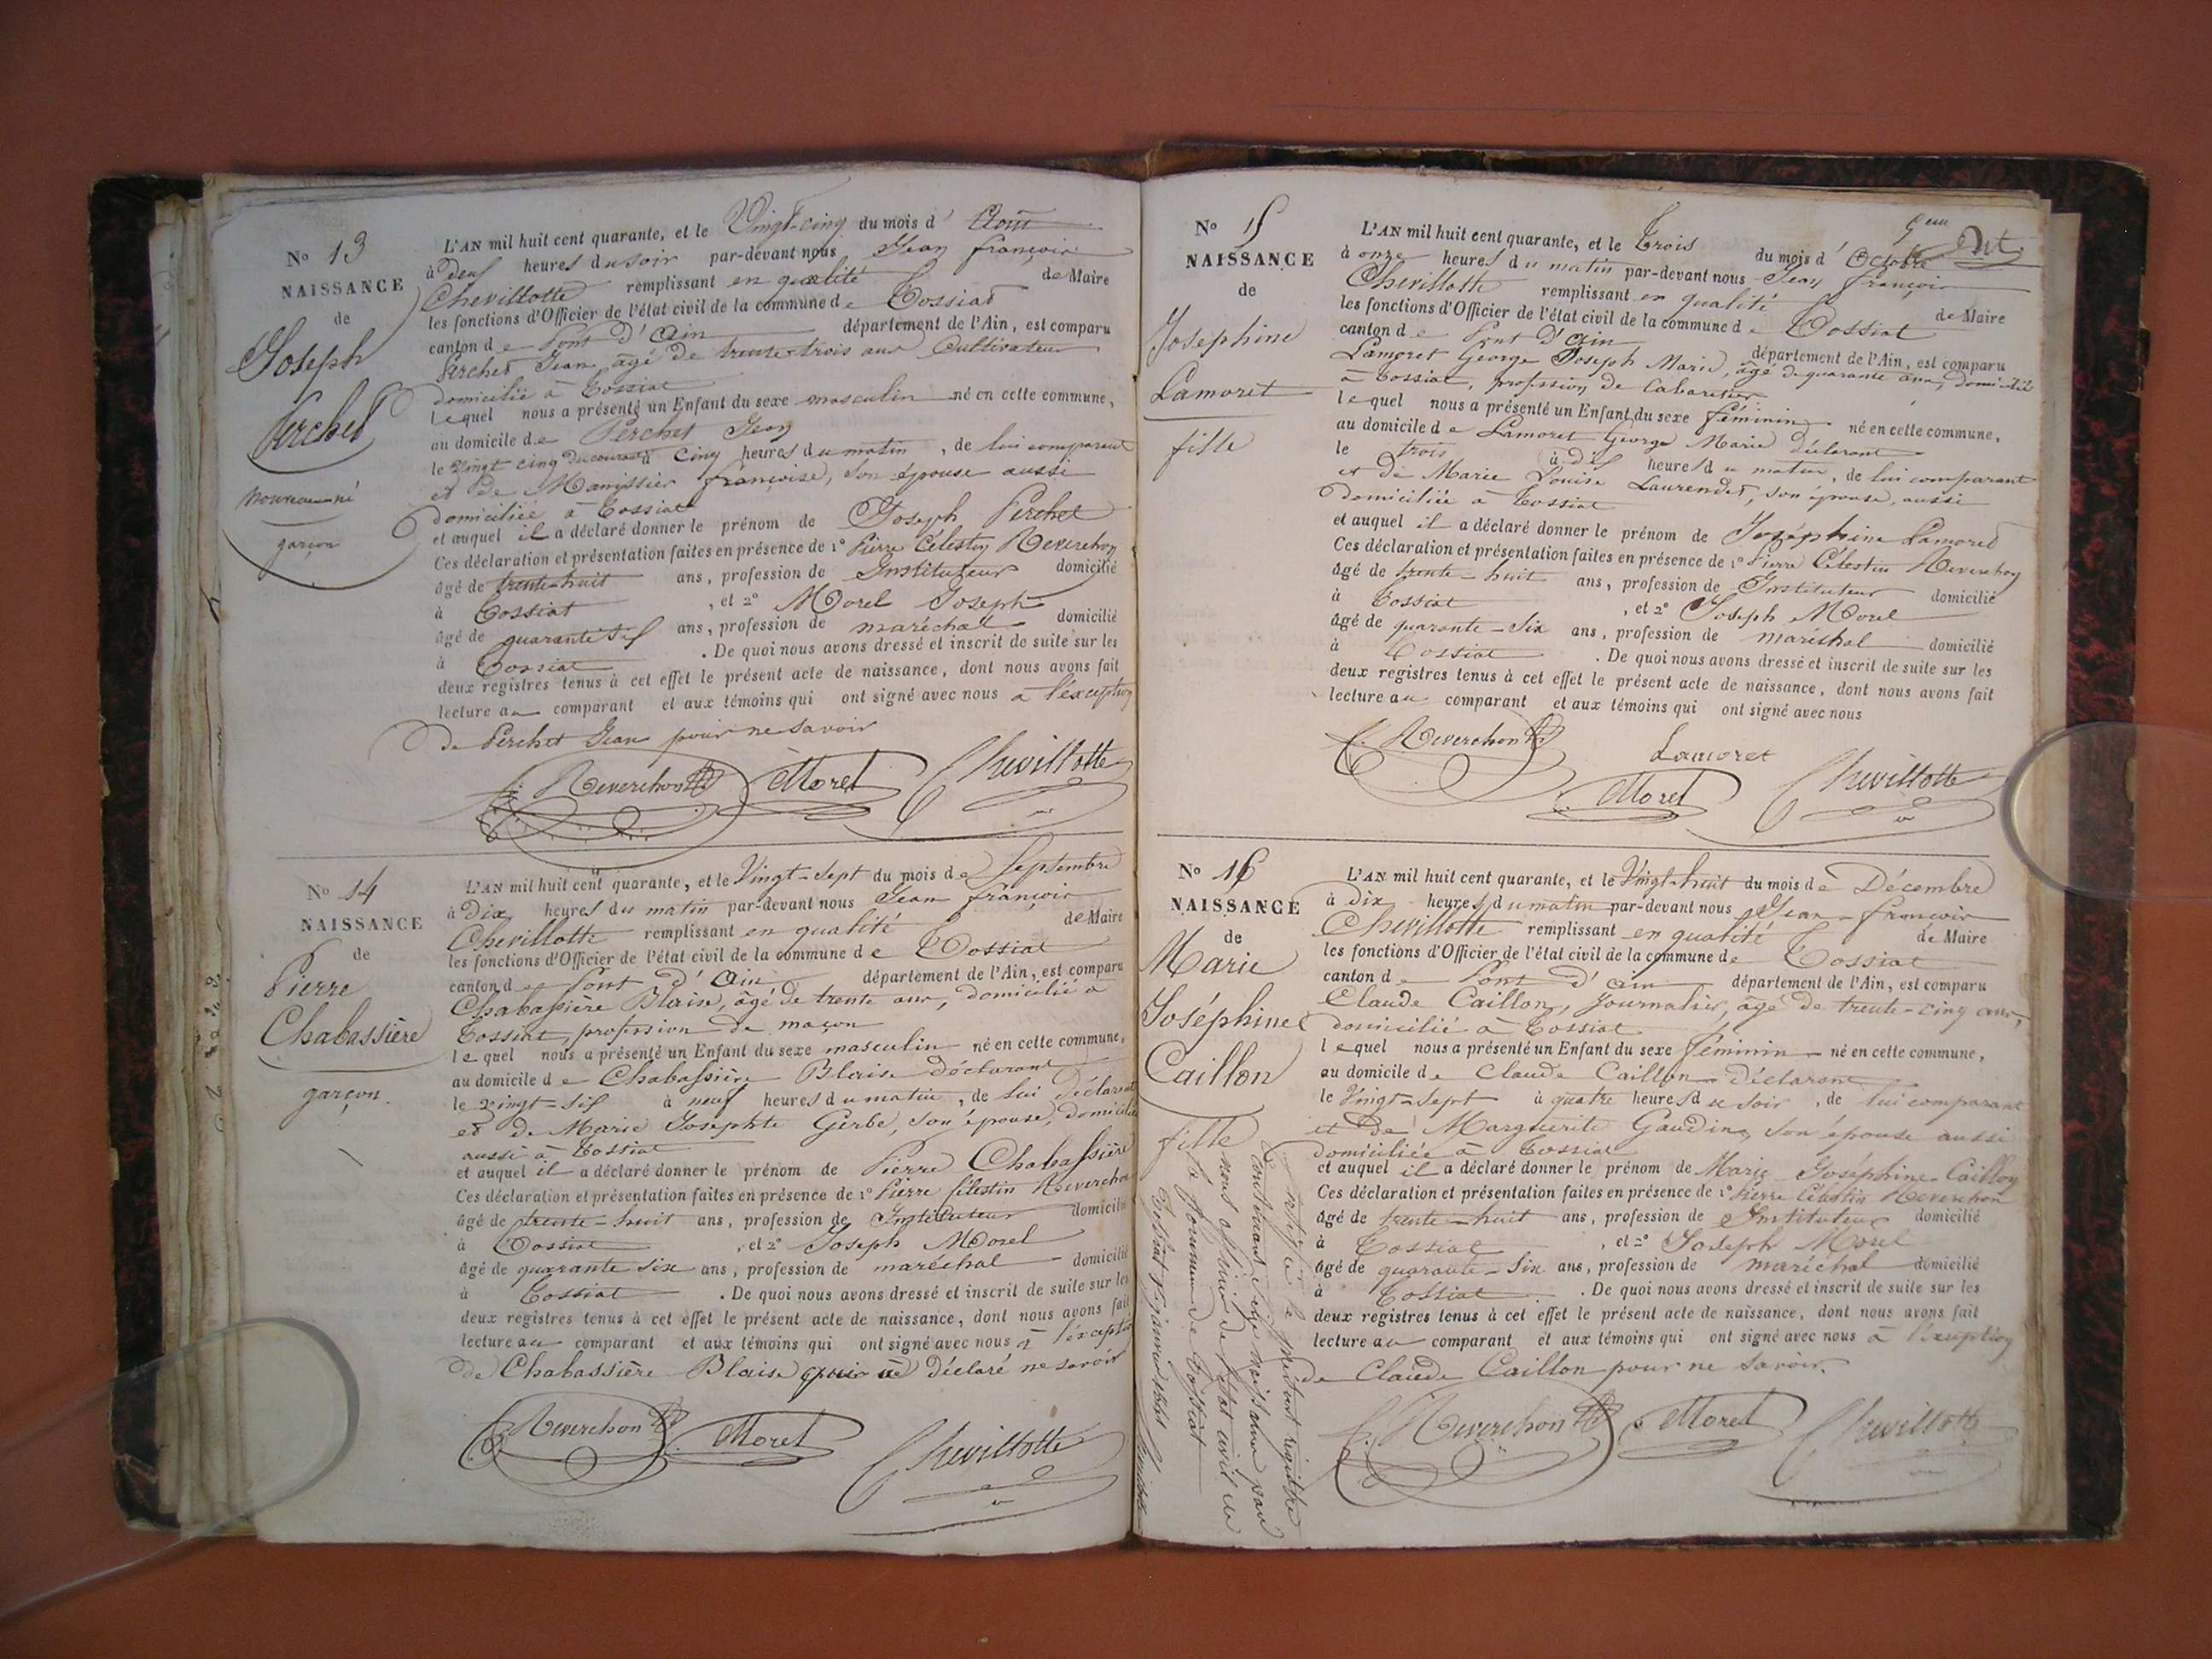 N° 13
NAISSANCE
de
Joseph
Perchet
nouveau-né
garçon
L'AN mil huit cent quarante, et le Vingt-cinq du mois d' Aout
à Deux heures du soir par-devant nous Jean françois
Chevillotte remplissant en qualité de Maire
les fonctions d'Officier de l'état civil de la commune de Tossiat
canton de Pont d'Ain département de l'Ain, est comparu
Perchet Jean, âgé de trente-trois ans Cultivateur
domicilié à Tossiat
lequel nous a présenté un Enfant du sexe masculin né en cette commune,
au domicile de Perchet Jean
le vingt cinq du courant à cinq heures du matin, de lui comparant
et de Manissier françoise, son épouse aussi
domiciliée à Tossiat
et auquel il a déclaré donner le prénom de Joseph Perchet
Ces déclaration et présentation faites en présence de 1° Pierre Célestin Reverchon
âgé de trente-huit ans, profession de Instituteur domicilié
à Tossiat, et 2° Morel Joseph
âgé de quarante six ans, profession de maréchal domicilié
à Tossiat. De quoi nous avons dressé et inscrit de suite sur les
deux registres tenus à cet effet le présent acte de naissance, dont nous avons fait
lecture au comparant et aux témoins qui ont signé avec nous à l'exception
de Perchet Jean pour ne savoir
Reverchon Morel Chevillotte
N° 14
NAISSANCE
de
Pierre
Chabassière
garçon.
L'AN mil huit cent quarante, et le Vingt-sept du mois de Septembre
à Dix heures du matin par-devant nous Jean françois
Chevillotte remplissant en qualité de Maire
les fonctions d'Officier de l'état civil de la commune de Tossiat
canton de Pont d'Ain département de l'Ain, est comparu
Chabassière Blaise, âgé de trente ans, domicilié à
Tossiat, profession de maçon
lequel nous a présenté un Enfant du sexe masculin né en cette commune,
au domicile de Chabassière Blaise déclarant
le vingt-six à neuf heures du matin, de lui déclarant
et de Marie Josephte Gerbe, son épouse, domiciliée
aussi à Tossiat
et auquel il a déclaré donner le prénom de Pierre Chabassière
Ces déclaration et présentation faites en présence de 1° Pierre Célestin Reverchon
âgé de trente-huit ans, profession de Instituteur domicilié
à Tossiat, et 2° Joseph Morel
âgé de quarante six ans, profession de maréchal domicilié
à Tossiat. De quoi nous avons dressé et inscrit de suite sur les
deux registres tenus à cet effet le présent acte de naissance, dont nous avons fait
lecture au comparant et aux témoins qui ont signé avec nous à l'exception
de Chabassière Blaise qui a déclaré ne savoir
Reverchon Morel Chevillotte
N° 15
NAISSANCE
de
Joséphine
Lamoret
fille
L'AN mil huit cent quarante, et le Trois du mois d' Octobre
à onze heures du matin par-devant nous Jean françois
Chevillotte remplissant en qualité de Maire
les fonctions d'Officier de l'état civil de la commune de Tossiat
canton de Pont d'Ain département de l'Ain, est comparu
Lamoret George Joseph Marie, âgé de quarante ans, domicilié
à Tossiat, profession de Cabaretier
lequel nous a présenté un Enfant du sexe féminin né en cette commune,
au domicile de Lamoret George Marie déclarant
le trois à dix heures du matin, de lui comparant
et de Marie Louise Laurendet, son épouse, aussi
domiciliée à Tossiat
et auquel il a déclaré donner le prénom de Joséphine Lamoret
Ces déclaration et présentation faites en présence de 1° Pierre Célestin Reverchon
âgé de trente-huit ans, profession de Instituteur domicilié
à Tossiat, et 2° Joseph Morel
âgé de quarante-six ans, profession de maréchal domicilié
à Tossiat. De quoi nous avons dressé et inscrit de suite sur les
deux registres tenus à cet effet le présent acte de naissance, dont nous avons fait
lecture au comparant et aux témoins qui ont signé avec nous
Reverchon Lamoret
Morel Chevillotte
N° 16
NAISSANCE
de
Marie
Joséphine
Caillon
fille
L'AN mil huit cent quarante, et le Vingt-huit du mois de Décembre
à Dix heures du matin par-devant nous Jean-françois
Chevillotte remplissant en qualité de Maire
les fonctions d'Officier de l'état civil de la commune de Tossiat
canton de Pont d'Ain département de l'Ain, est comparu
Claude Caillon, Journalier, âgé de trente-cinq ans,
domicilié à Tossiat
lequel nous a présenté un Enfant du sexe féminin né en cette commune,
au domicile de Claude Caillon déclarant
le Vingt-sept à quatre heures du soir, de lui comparant
et de Marguerite Gaudin son épouse aussi
domiciliée à Tossiat
et auquel il a déclaré donner le prénom de Marie Joséphine Caillon
Ces déclaration et présentation faites en présence de 1° Pierre Célestin Reverchon
âgé de trente-huit ans, profession de Instituteur domicilié
à Tossiat, et 2° Joseph Morel
âgé de quarante-six ans, profession de maréchal domicilié
à Tossiat. De quoi nous avons dressé et inscrit de suite sur les
deux registres tenus à cet effet le présent acte de naissance, dont nous avons fait
lecture au comparant et aux témoins qui ont signé avec nous à l'exception
de Claude Caillon pour ne savoir.
Reverchon Morel Chevillotte
certifié le présent registre
contenant seize naissances par
nous officier de l'état civil de
la Commune de Tossiat
Tossiat janvier 1841 Chevillotte